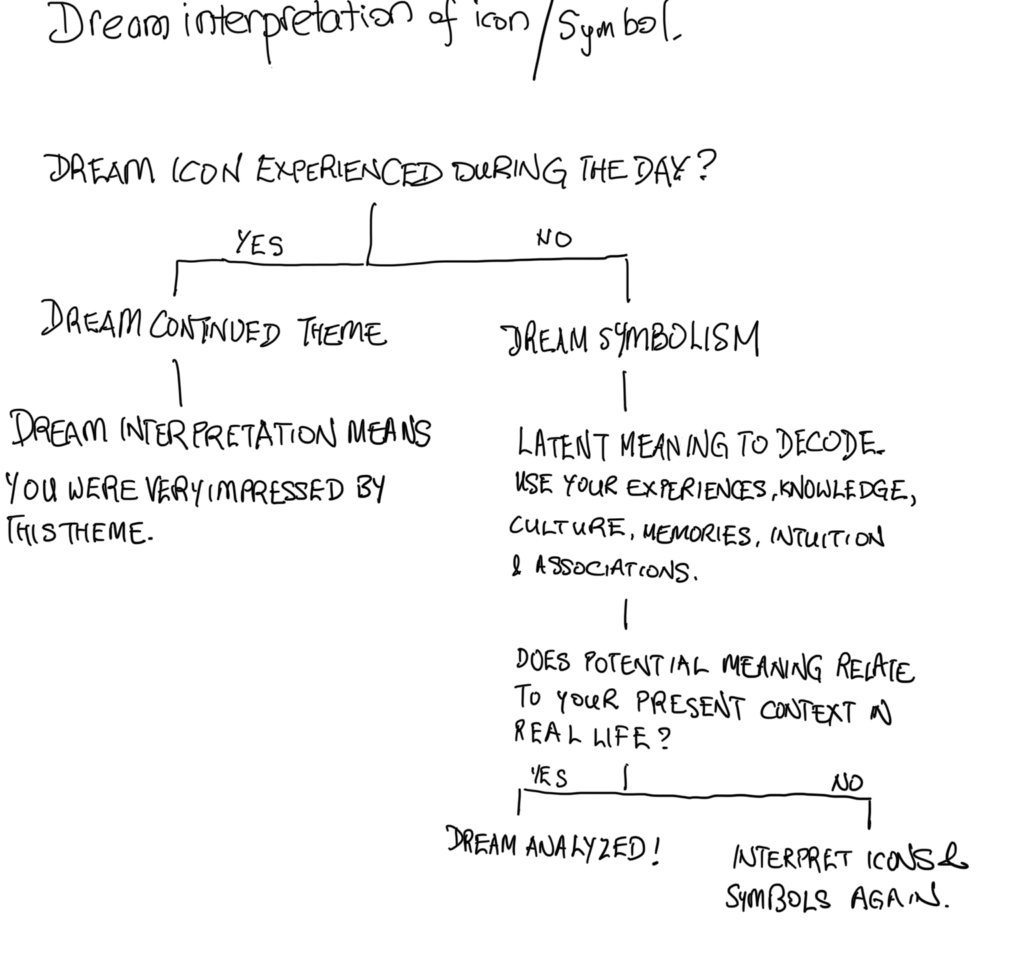 Dream interpretation of icon/Symbol.
DREAM ICON EXPERIENCED DURING THE DAY?
YES
NO
DREAM CONTINUED THEME
DREAM SYMBOLISM
DREAM INTERPRETATION MEANS
YOU WERE VERY IMPRESSED BY
THIS THEME.
LATENT MEANING TO DECODE.
USE YOUR EXPERIENCES, KNOWLEDGE,
CULTURE, MEMORIES, INTUITION
& ASSOCIATIONS.
DOES POTENTIAL MEANING RELATE
TO YOUR PRESENT CONTEXT IN
REAL LIFE?
YES
NO
DREAM ANALYZED!
INTERPRET ICONS &
SYMBOLS AGAIN.